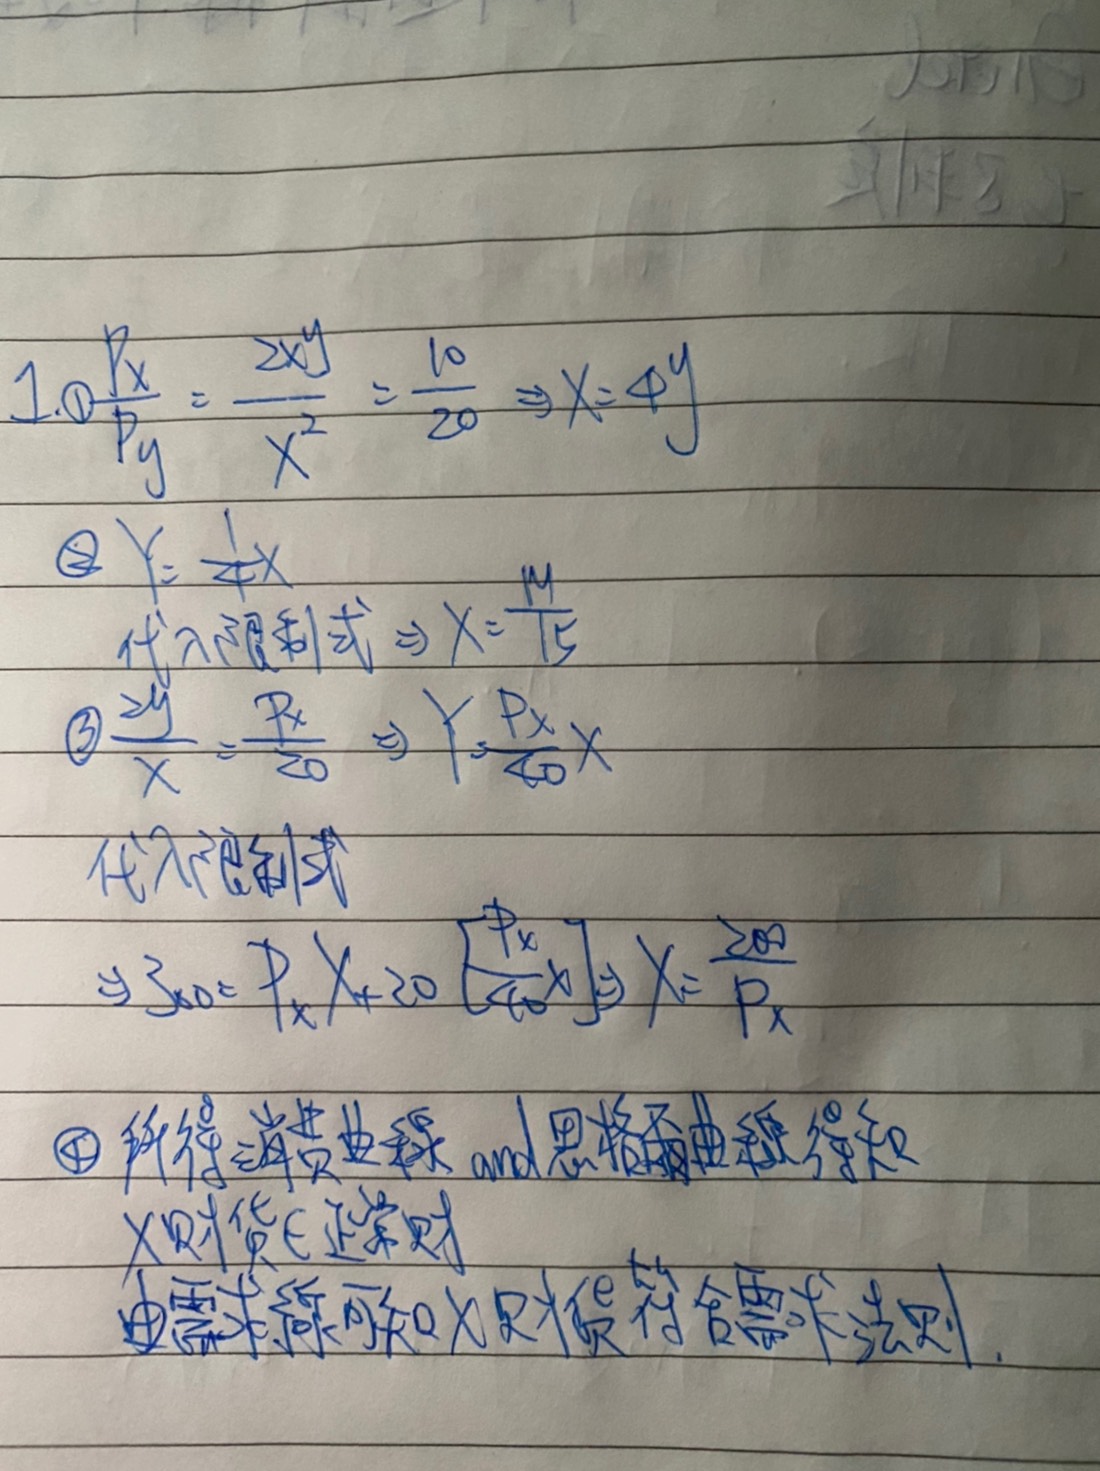 1.① Px/Py = 2xy/x² = 10/20 ⇒ X=4y
② Y= 1/4 X
代入限制式 ⇒ X= M/15
③ 2y/x = Px/20 ⇒ Y= Px/40 X
代入限制式
⇒ 300= PxX+20 [Px/40 X] ⇒ X= 200/Px
④ 所得消費曲線 and 恩格爾曲線得知
X財貨∈正常財
由需求線可知X財貨符合需求法則.